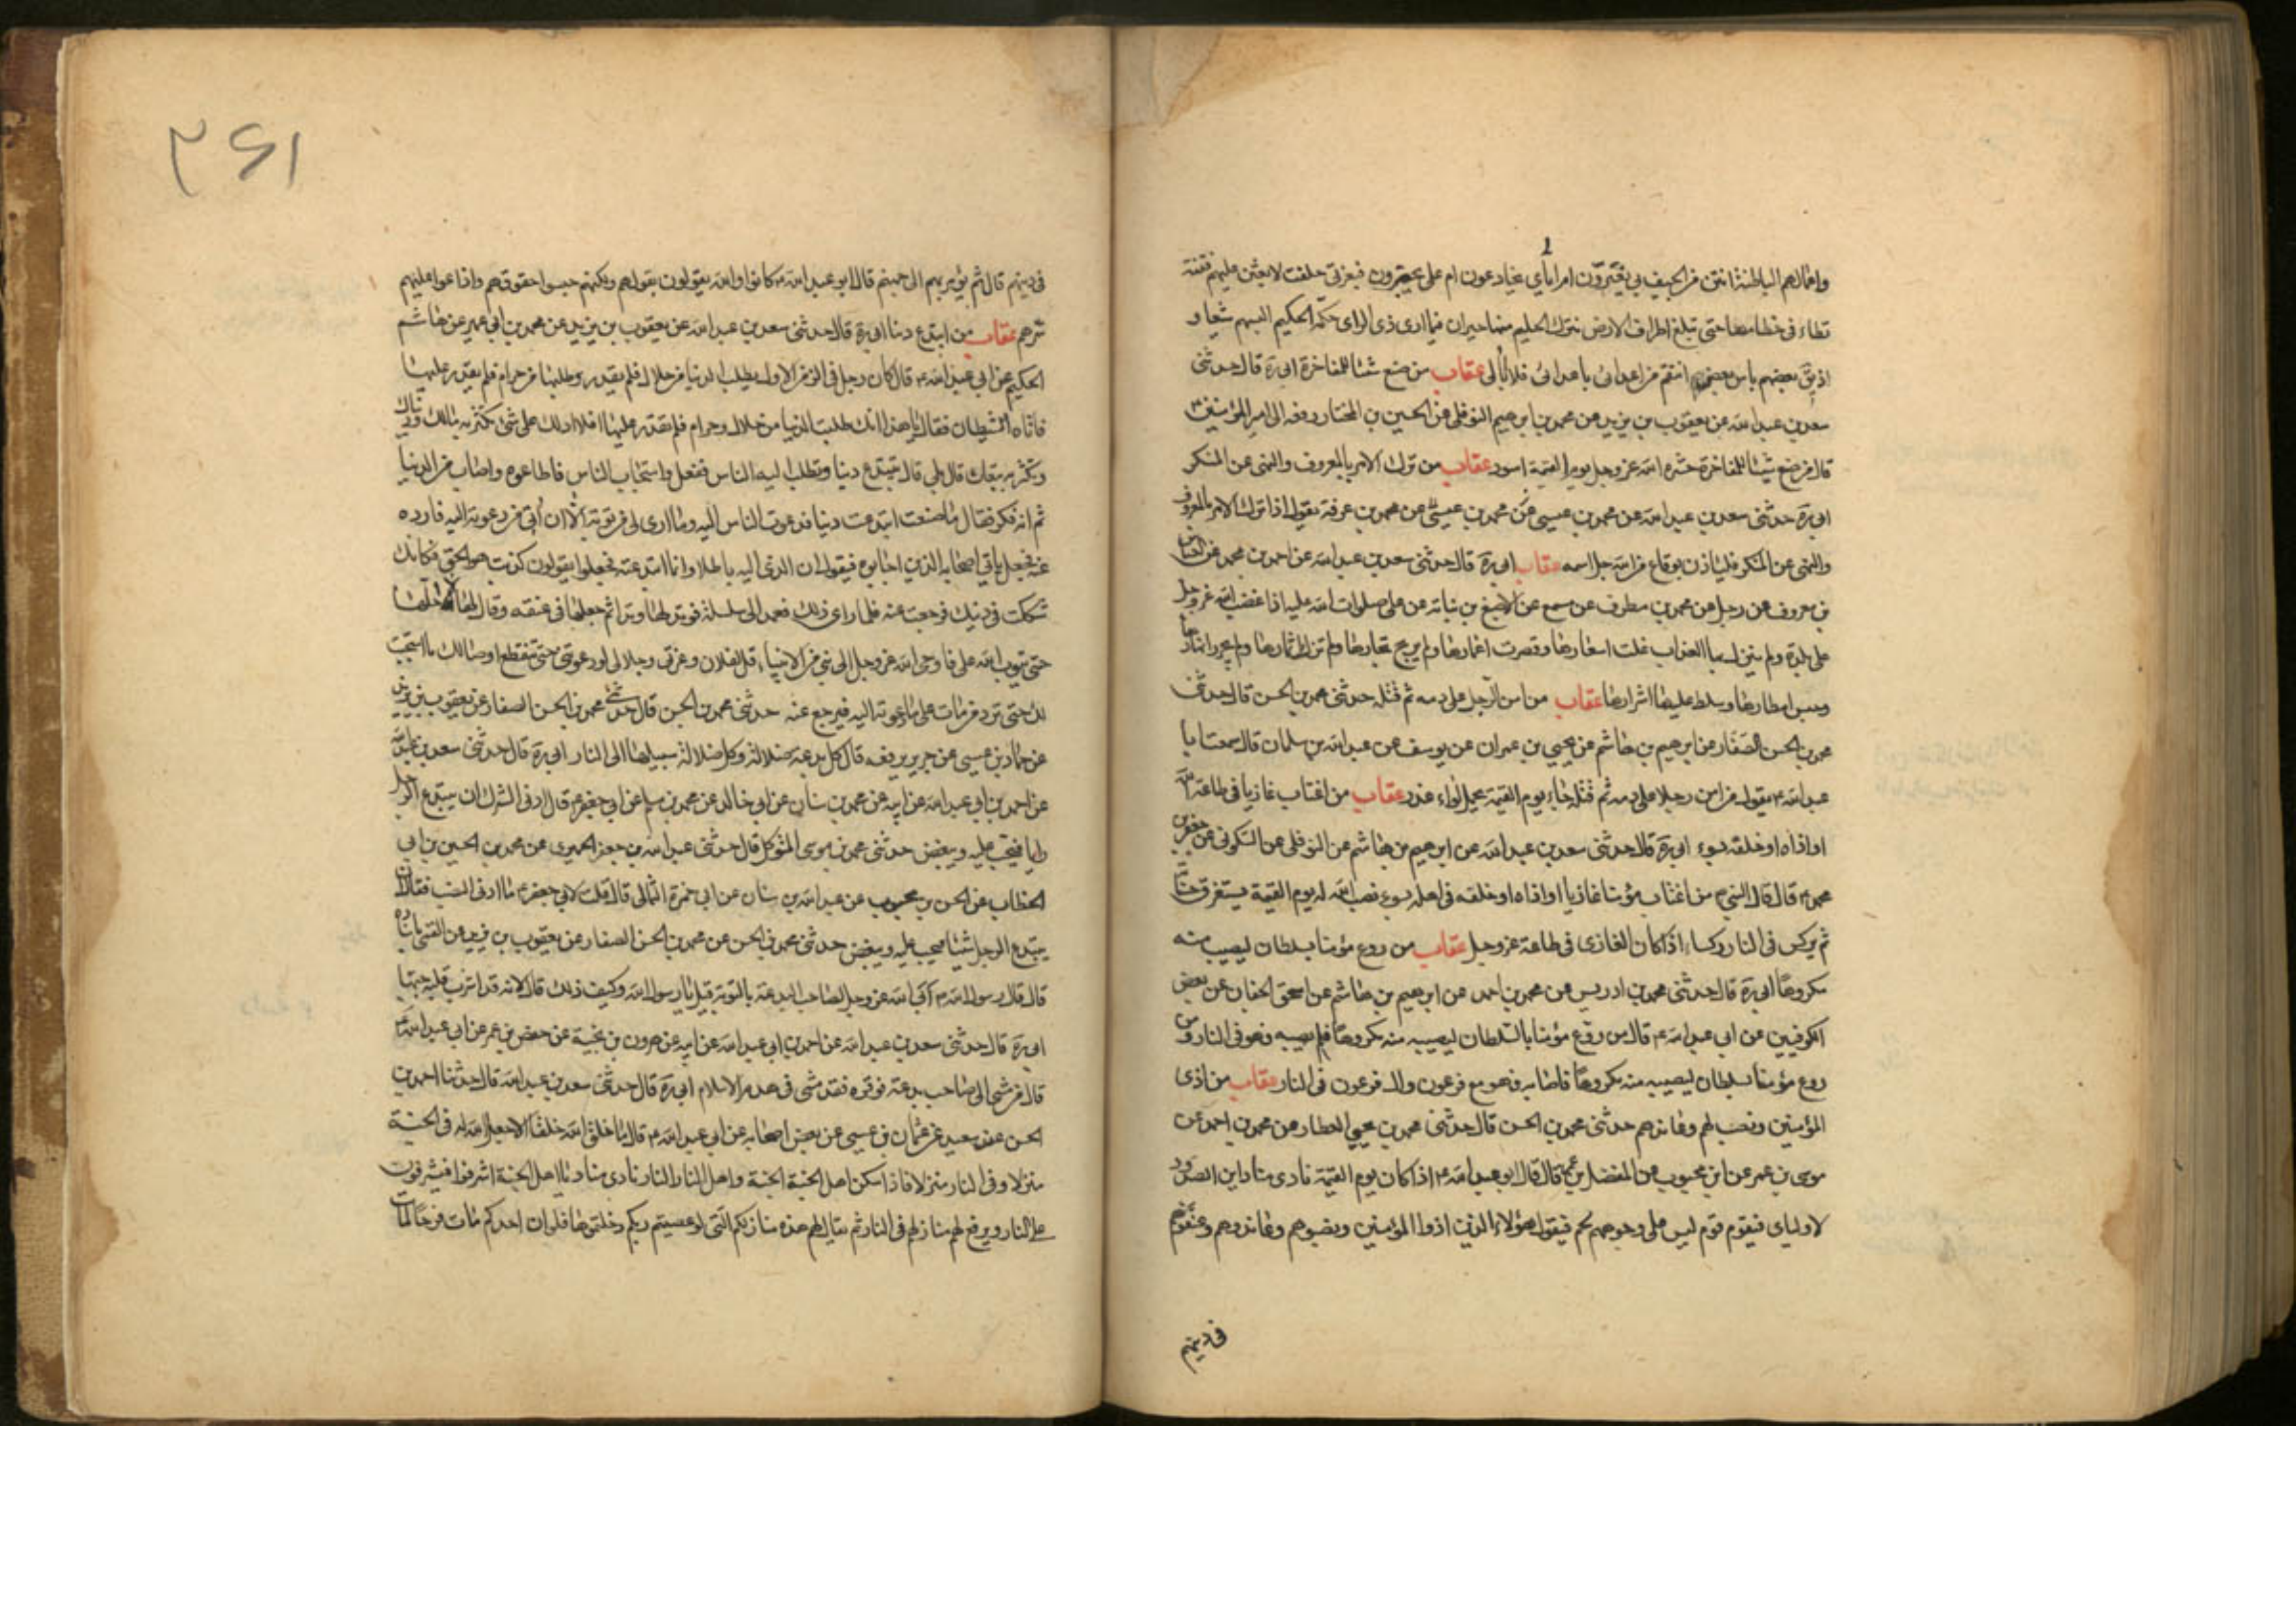 واعمالهم الباطنة انتن من الجيف بي يغترون ام اياي يخادعون ام علي يجترون فبعزتي حلفت لابعثن عليهم فتنة
تطاء في خطامها حتى تبلغ اطراف الارض تترك الحليم منها حيران فيها اری ذی الرای حكمة الحكيم البسهم شيعا و
اذيق بعضهم باس بعض انتقم من اعدائي باعدائي فلا ابالي عقاب من صنع شيئا للمفاخرة ابي ره قال حدثني
سعد بن عبد الله عن يعقوب بن يزيد عن محمد بن ابرهيم النوفلي عن الحسين بن المختار رفعه الى امير المؤمنين
قال من صنع شيئا للمفاخرة حشره الله عز وجل يوم القيمة اسود عقاب من ترك الامر بالمعروف والنهى عن المنكر
ابي ره حدثني سعد بن عبد الله عن محمد بن عيسى عن محمد بن عيسى عن محمد بن عرفة يقول اذا ترك الامر بالمعروف
والنهى عن المنكر فلياذن بوقاع من الله جل اسمه عقاب ابي ره قال حدثني سعد بن عبد الله عن احمد بن محمد عن العباس
بن معروف عن رجل عن محمد بن مطرف عن مسمع عن الاصبغ بن نباته عن على صلوات الله عليه اذا غضب الله عز وجل
على بلدة ولم ينزل بها العذاب غلت اسعارها وقصرت اعمارها ولم يربح تجارها ولم تزك ثمارها ولم يجر انهارها
وحبس امطارها وسلط عليها اشرارها عقاب من امن الرجل على دمه ثم قتله حدثني محمد بن الحسن قال حدثني
محمد بن الحسن الصفار عن ابرهيم بن هاشم عن يحيى بن عمران عن يوسف عن عبد الله بن سلمان قال سمعت ابا
عبد الله ع يقول من امن رجلا على دمه ثم قتله جاء يوم القيمة يحمل لواء غدر عقاب من اغتاب غازيا في طاعة الله
او اذاه او خلفه بسوء ابي ره قال حدثني سعد بن عبد الله عن ابرهيم بن هاشم عن النوفلي عن السكوني عن جعفر بن
محمد ع قال قال النبي ص من اغتاب مؤمنا غازيا او اذاه او خلفه في اهله بسوء نصب الله له يوم القيمة يستغرق حسناته
ثم يركس في النار ركسا اذا كان الغازى في طاعة عز وجل عقاب من روع مؤمنا بسلطان ليصيب منه
مكروها ابي ره قال حدثني محمد بن ادريس عن محمد بن احمد عن ابرهيم بن هاشم عن اسحق الخفاف عن بعض
الكوفيين عن ابي عبد الله ع قال من روع مؤمنا بالسلطان ليصيبه منه مكروها فلم يصيبه فهو في النار ومن
روع مؤمنا بسلطان ليصيبه منه مكروها فاصابه فهو مع فرعون وال فرعون في النار عقاب من اذى
المؤمنين ونصب لهم وعاندهم حدثني محمد بن الحسن قال حدثني محمد بن يحيى العطار عن محمد بن احمد عن
موسى بن عمر عن ابن محبوب عن المفضل بن عمر قال قال ابو عبد الله ع اذا كان يوم القيمة نادى مناد اين الصدود
لاوليای فيقوم قوم ليس على وجوههم لحم فيقول هؤلاء الذين اذوا المؤمنين ونصبوهم وعاندوهم وعنفوهم
في دينهم
٣٦١
في دينهم قال ثم يؤمر بهم الى جهنم قال ابو عبد الله ع كانوا والله يقولون بقولهم ولكنهم حبسوا حقوقهم واذاعوا عليهم
سرهم عقاب من ابتدع دينا ابي ره قال حدثني سعد بن عبد الله عن يعقوب بن يزيد عن محمد بن ابي عمير عن هاشم
الحكيم عن ابي عبد الله ع قال كان رجل في الزمن الاول يطلب الدنيا من حلال فلم يقدر وطلبها من حرام فلم يقدر عليها
فاتاه الشيطان فقال يا هذا انك طلبت الدنيا من حلال وحرام فلم تقدر عليها افلا ادلك على شئ تكثر به مالك ودنياك
وتكثر به تبعك قال بلى قال تبتدع دينا وتطلب اليه الناس ففعل واستجاب الناس فاطاعوه واصاب من الدنيا
ثم انه فكر فقال ما صنعت ابتدعت دينا فدعوت الناس اليه وما ارى لي من توبة الا ان اتي من دعوته اليه فارده
عنه فجعل ياتي اصحابه الذين اجابوه فيقول ان الذي اليه باطلا وانما ابتدعته فجعلوا يقولون كذبت هو الحق ولكنك
شككت في دينك فرجعت عنه فلما راى ذلك فعمد الى سلسلة فوتد لها وتدا ثم جعلها في عنقه وقال لا احلها
حتى يتوب الله على فاوحى الله عز وجل الى نبي من الانبياء قل لفلان وعزتي وجلالي لو دعوتني حتى تنقطع اوصالك ما استجبت
لك حتى ترد من مات على ما دعوته اليه فيرجع عنه حدثني محمد بن الحسن قال حدثني محمد بن الحسن الصفار عن يعقوب بن يزيد
عن حماد بن عيسى عن حريز يرفعه قال كل بدعة ضلالة وكل ضلالة سبيلها الى النار ابي ره قال حدثني سعد بن عبد الله
عن احمد بن ابي عبد الله عن ابيه عن محمد بن سنان عن ابي خالد عن محمد بن مسلم عن ابي جعفر ع قال ادنى الشرك ان يبتدع الرجل
رايا فيحب عليه ويبغض حدثني محمد بن موسى المتوكل قال حدثني عبد الله بن جعفر الحميرى عن محمد بن الحسين بن ابي
الخطاب عن الحسن بن محبوب عن عبد الله بن سنان عن ابي حمزة الثمالي قال قلت لابي جعفر ع ما ادنى النصب فقال ان
يبتدع الرجل شيئا فيحب عليه ويبغض حدثني محمد بن الحسن عن محمد بن الحسن الصفار عن يعقوب بن يزيد عن العمى باسناده
قال قال رسول الله ص ابى الله عز وجل لصاحب البدعة بالتوبة قيل يا رسول الله وكيف ذلك قال لانه قد اشرب قلبه حبها
ابي ره قال حدثني سعد بن عبد الله عن احمد بن ابي عبد الله عن ابيه عن هرون بن عن حفص بن عمر عن ابي عبد الله ع
قال من مشى الى صاحب بدعة فوقره فقد مشى في هدم الاسلام ابي ره قال حدثني سعد بن عبد الله قال حدثنا احمد بن
الحسن عن سعيد عن عثمان بن عيسى عن بعض اصحابه عن ابي عبد الله ع قال ما خلق الله خلقا الا جعل الله له في الجنة
منزلا وفي النار منزلا فاذا سكن اهل الجنة الجنة واهل النار النار نادى مناد يا اهل الجنة اشرفوا فيشرفون
على النار ويرفع لهم منازلهم في النار ثم يقال لهم هذه منازلكم التى لو عصيتم ربكم دخلتموها فلو ان احدكم مات فرحا لمات